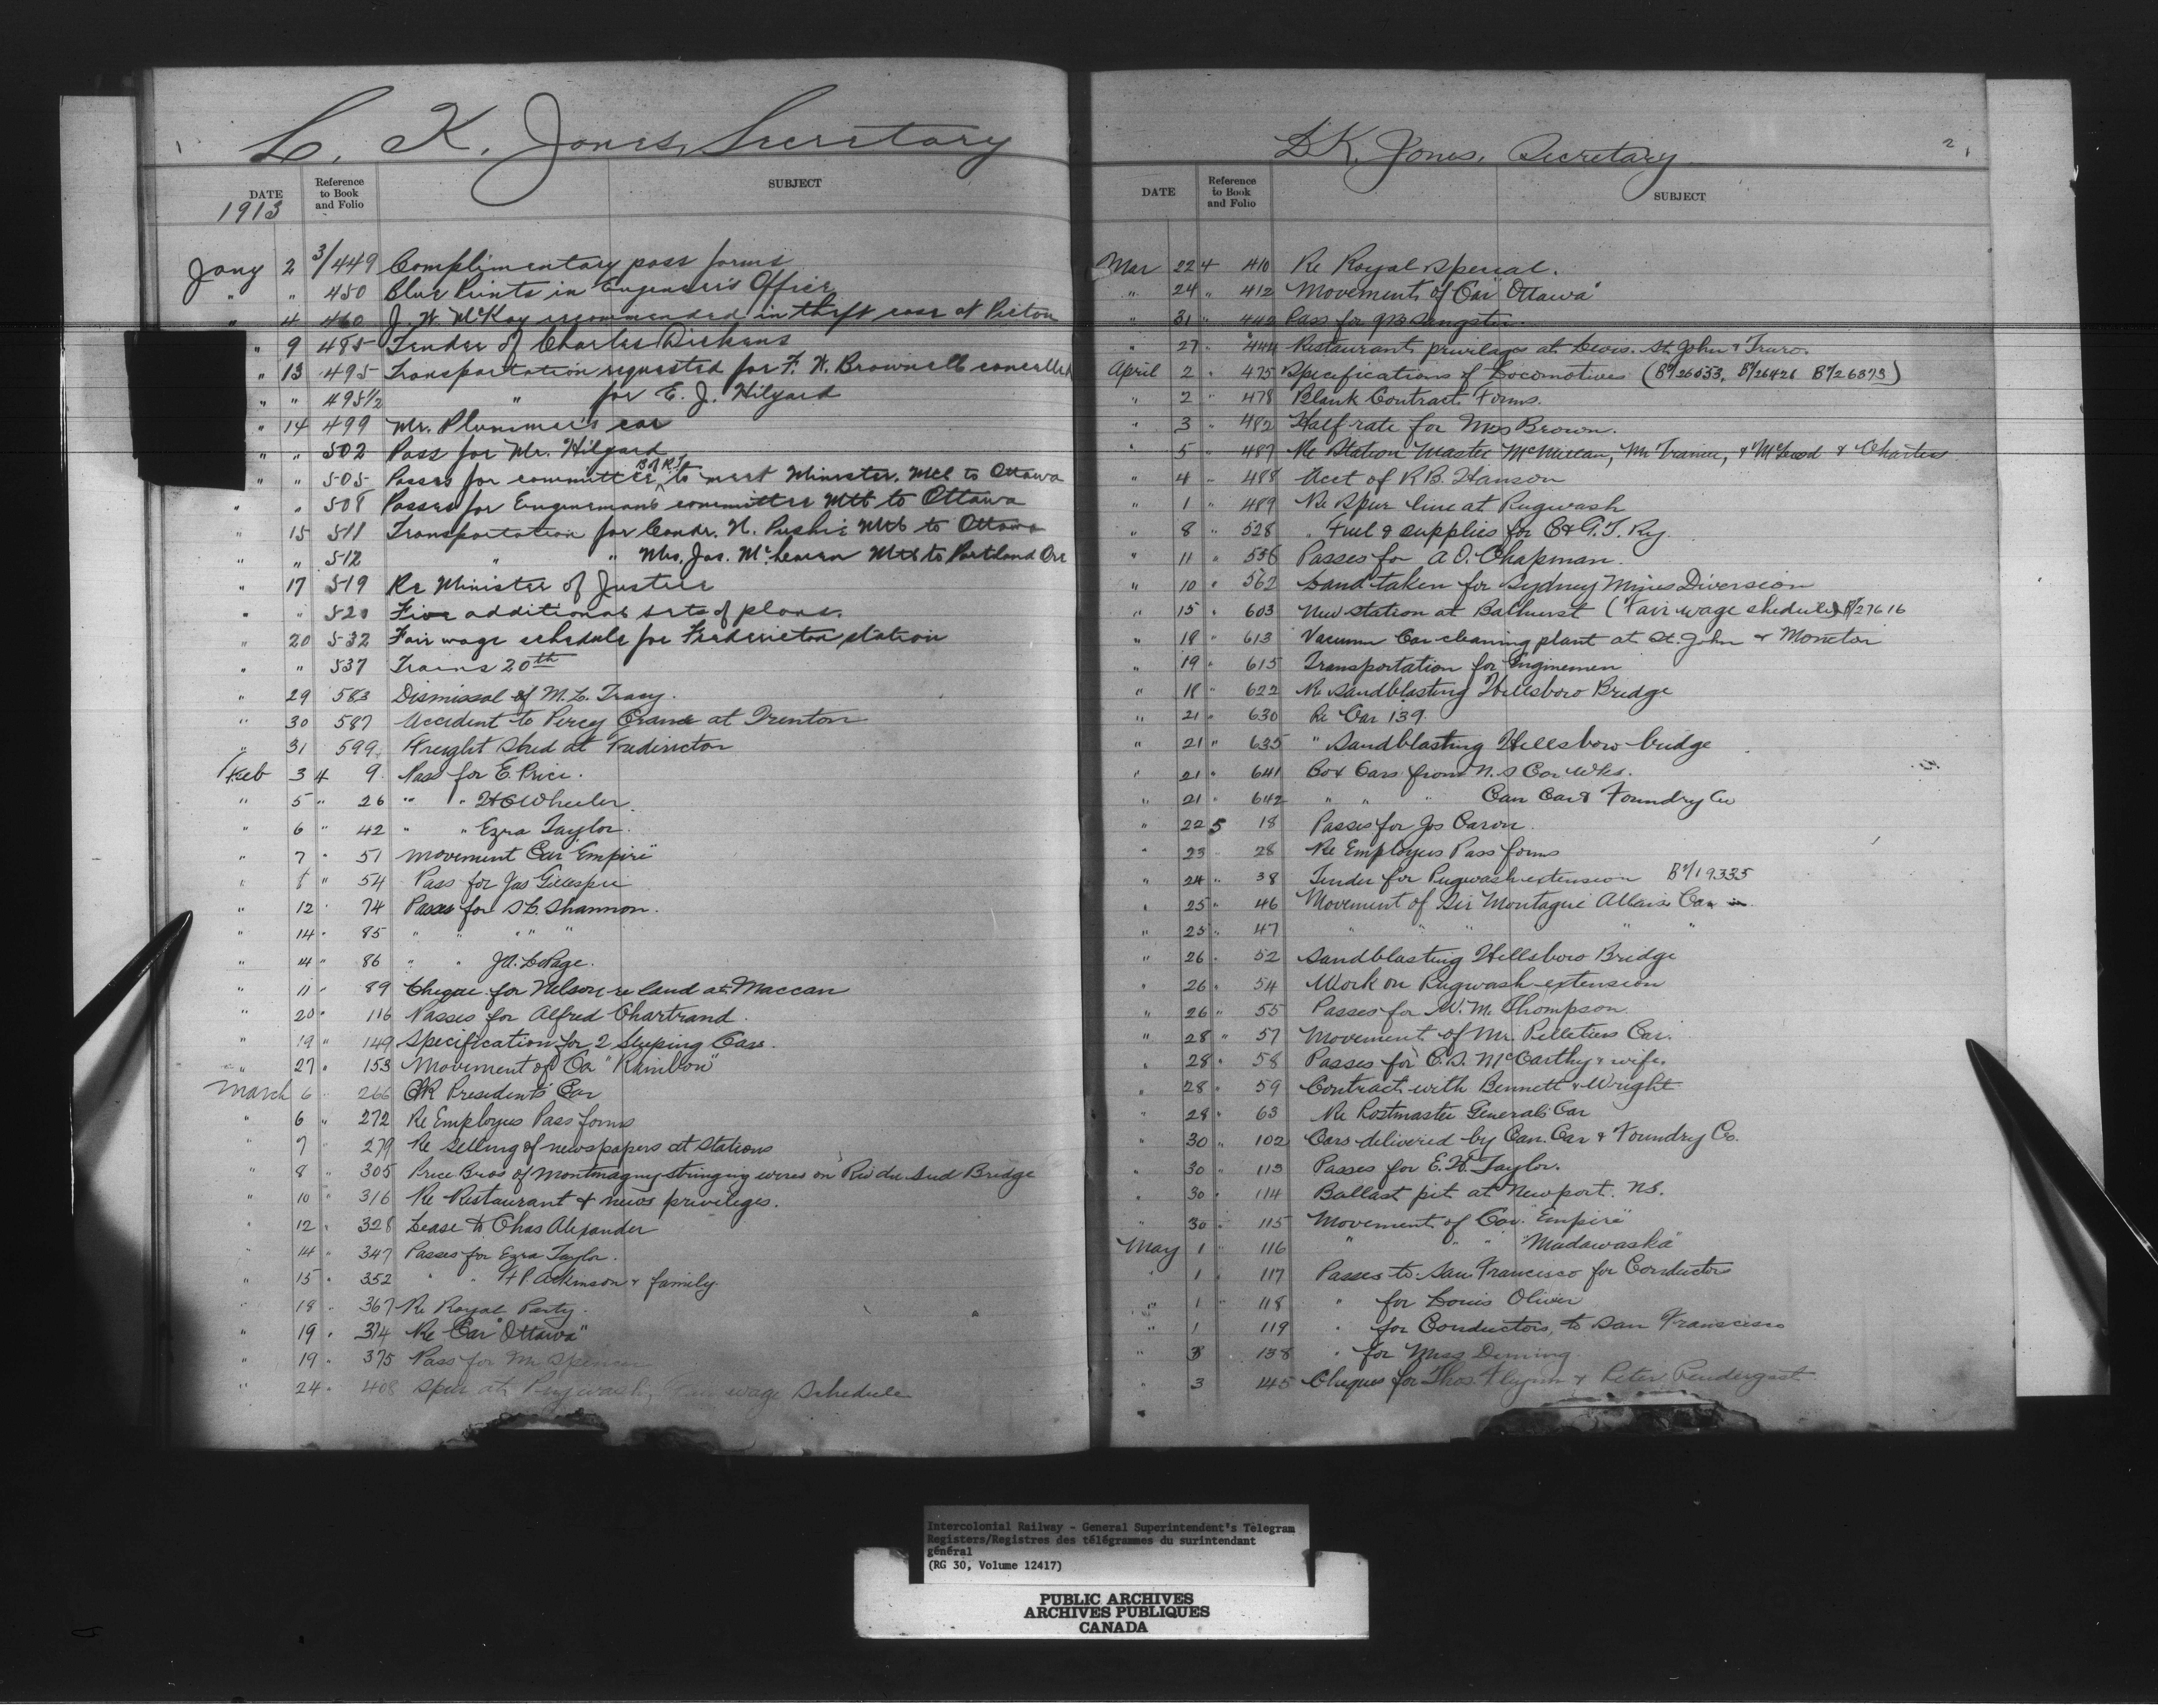 1
L. K. Jones, Secretary
DATE Reference to Book and Folio SUBJECT
1913
Jany 2 3/449 Complimentary pass forms
" " 450 Blue Prints in Engineer's Office
" 4 460 J. W. McKay recommended in theft case at Pictou
" 9 485 Tender of Charles Dickens
" 13 495 Transportation requested for F. W. Brownell cancelled
" " 495½ " for E. J. Hilyard
" 14 499 Mr. Plummer's car
" " 502 Pass for Mr. Hilyard
" " 505 Passes for committee, B of R T to meet Minister. Mtl to Ottawa
" " 508 Passes for Enginemen's committee Mtl to Ottawa
" 15 511 Transportation for Condr. N. Mtl to Ottawa
" " 512 " " Mrs. Jas. McLearn Mtl to Portland Ore
" 17 519 Re Minister of Justice
" " 520 Five additional sets of plans.
" 20 532 Fair wage schedule for Fredericton station
" " 537 Trains 20th
" 29 583 Dismissal of M. L. Tracy.
" 30 587 Accident to Percy Crane at Trenton
" 31 599 Freight Shed at Fredericton
Feb 3 4 9 Pass for E. Price.
" 5 " 26 " " H C Wheeler.
" 6 " 42 " " Ezra Taylor.
" 7 " 51 Movement Car "Empire"
" 8 " 54 Pass for Jas Gillespie
" 12 " 74 Passes for S. C. Shannon.
" 14 " 85 " " " " "
" 14 " 86 " " J A. LePage.
" 11 " 89 Cheque for Nelson re land at Maccan
" 20 " 116 Passes for Alfred Chartrand.
" 19 " 149 Specification for 2 Sleeping Cars.
" 27 " 153 Movement of Car "Rainbow"
March 6 " 266 CPR President's Car
" 6 " 272 Re Employes Pass forms
" 7 " 279 Re Selling of newspapers at Stations
" 8 " 305 Price Bros of Montmagny stringing wires on Riv du Sud Bridge
" 10 " 316 Re Restaurant & news privileges.
" 12 " 328 Lease to Chas Alexander
" 14 " 347 Passes for Ezra Taylor.
" 15 " 352 " " H P. Atkinson & family.
" 18 " 367 Re Royal Party.
" 19 " 374 Re Car "Ottawa"
" 19 " 375 Pass for Mr Spencer
" 24 " 408 Spur at Pugwash, fair wage Schedule
2
L K. Jones, Secretary
DATE Reference to Book and Folio SUBJECT
Mar 22 4 410 Re Royal Special.
" 24 " 412 Movement of Car "Ottawa"
" 31 " 442 Pass for Sangster.
" 27 " 444 Restaurant privilages at Levis. St. John & Truro.
April 2 " 475 Specifications of Locomotives
" 2 " 478 Blank Contract Forms.
" 3 " 482 Half rate for Mrs Brown.
" 5 " 487 Re Station Master McMillan, & McLeod & Charters
" 4 " 488 Acct of R B. Hanson
" 1 " 489 Re Spur line at Pugwash
" 8 " 528 " Fuel & supplies for C & G. T. Ry.
" 11 " 556 Passes for A O. Chapman.
" 10 " 562 Land taken for Sydney Mines Diversion
" 15 " 603 New Station at Bathurst (Fair wage shedule) B1/27616
" 18 " 613 Vacuum Car cleaning plant at St. John & Moncton
" 19 " 615 Transportation for Enginemen
" 18 " 622 Re Sandblasting Hillsboro Bridge
" 21 " 630 Re Car 139.
" 21 " 635 " Sandblasting Hillsboro bridge
" 21 " 641 Box Cars from N. S Car Wks.
" 21 " 642 " " " Can Car & Foundry Co
" 22 5 18 Passes for Jos Caron.
" 23 " 28 Re Employes Pass forms
" 24 " 38 Tender for Pugwash extension B1/19335
" 25 " 46 Movement of Sir Montague Allan's Car
" 25 " 47 " " " " "
" 26 " 52 Sandblasting Hillsboro Bridge
" 26 " 54 Work on Pugwash extension
" 26 " 55 Passes for W. M. Thompson
" 28 " 57 Movement of Mr. Pelletiers Car.
" 28 " 58 Passes for C. S. McCarthy & wife.
" 28 " 59 Contract with Bennett & Wright
" 28 " 63 Re Postmaster General's Car
" 30 " 102 Cars delivered by Can. Car & Foundry Co.
" 30 " 113 Passes for E. H. Taylor.
" 30 " 114 Ballast pit at Newport. NS.
" 30 " 115 Movement of Car. "Empire"
May 1 " 116 " " " "Madawaska"
" 1 " 117 Passes to San Francisco for Conductors
" 1 " 118 " for Louis Oliver
" 1 " 119 " for Conductors, to San Francisco
" 3 " 138 " for Miss Deming.
" 3 145 Cheques for Thos. Flynn & Peter Pendergast
Intercolonial Railway - General Superintendent's Telegram
Registers/Registres des télégrammes du surintendant
général
(RG 30, Volume 12417)
PUBLIC ARCHIVES
ARCHIVES PUBLIQUES
CANADA